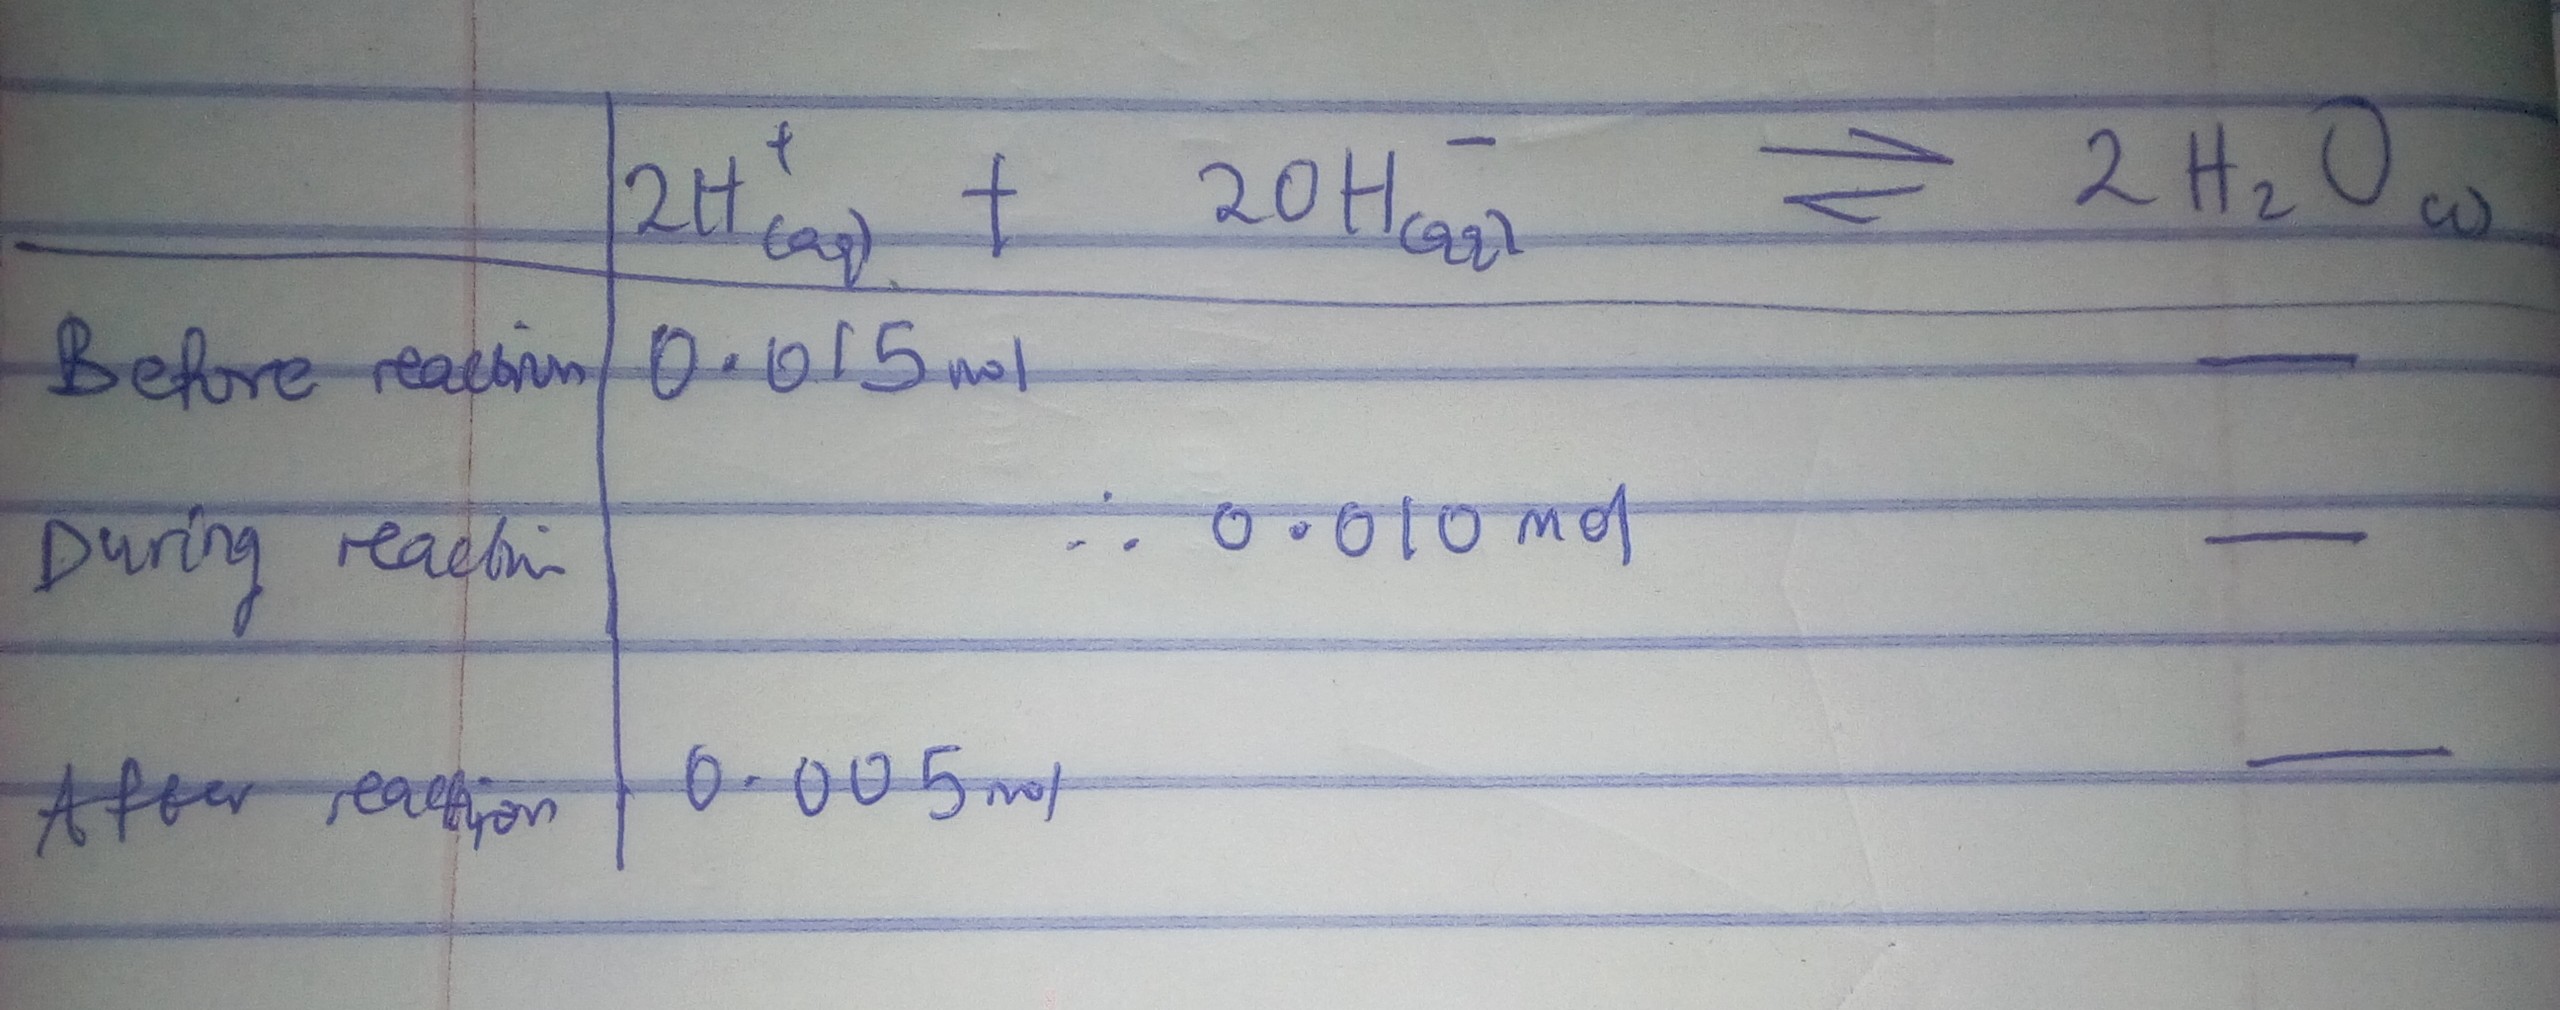 2H⁺(aq) + 2OH⁻(aq) ⇌ 2H₂O(l)
Before reaction 0.015 mol —
During reaction ∴ 0.010 mol —
After reaction 0.005 mol —